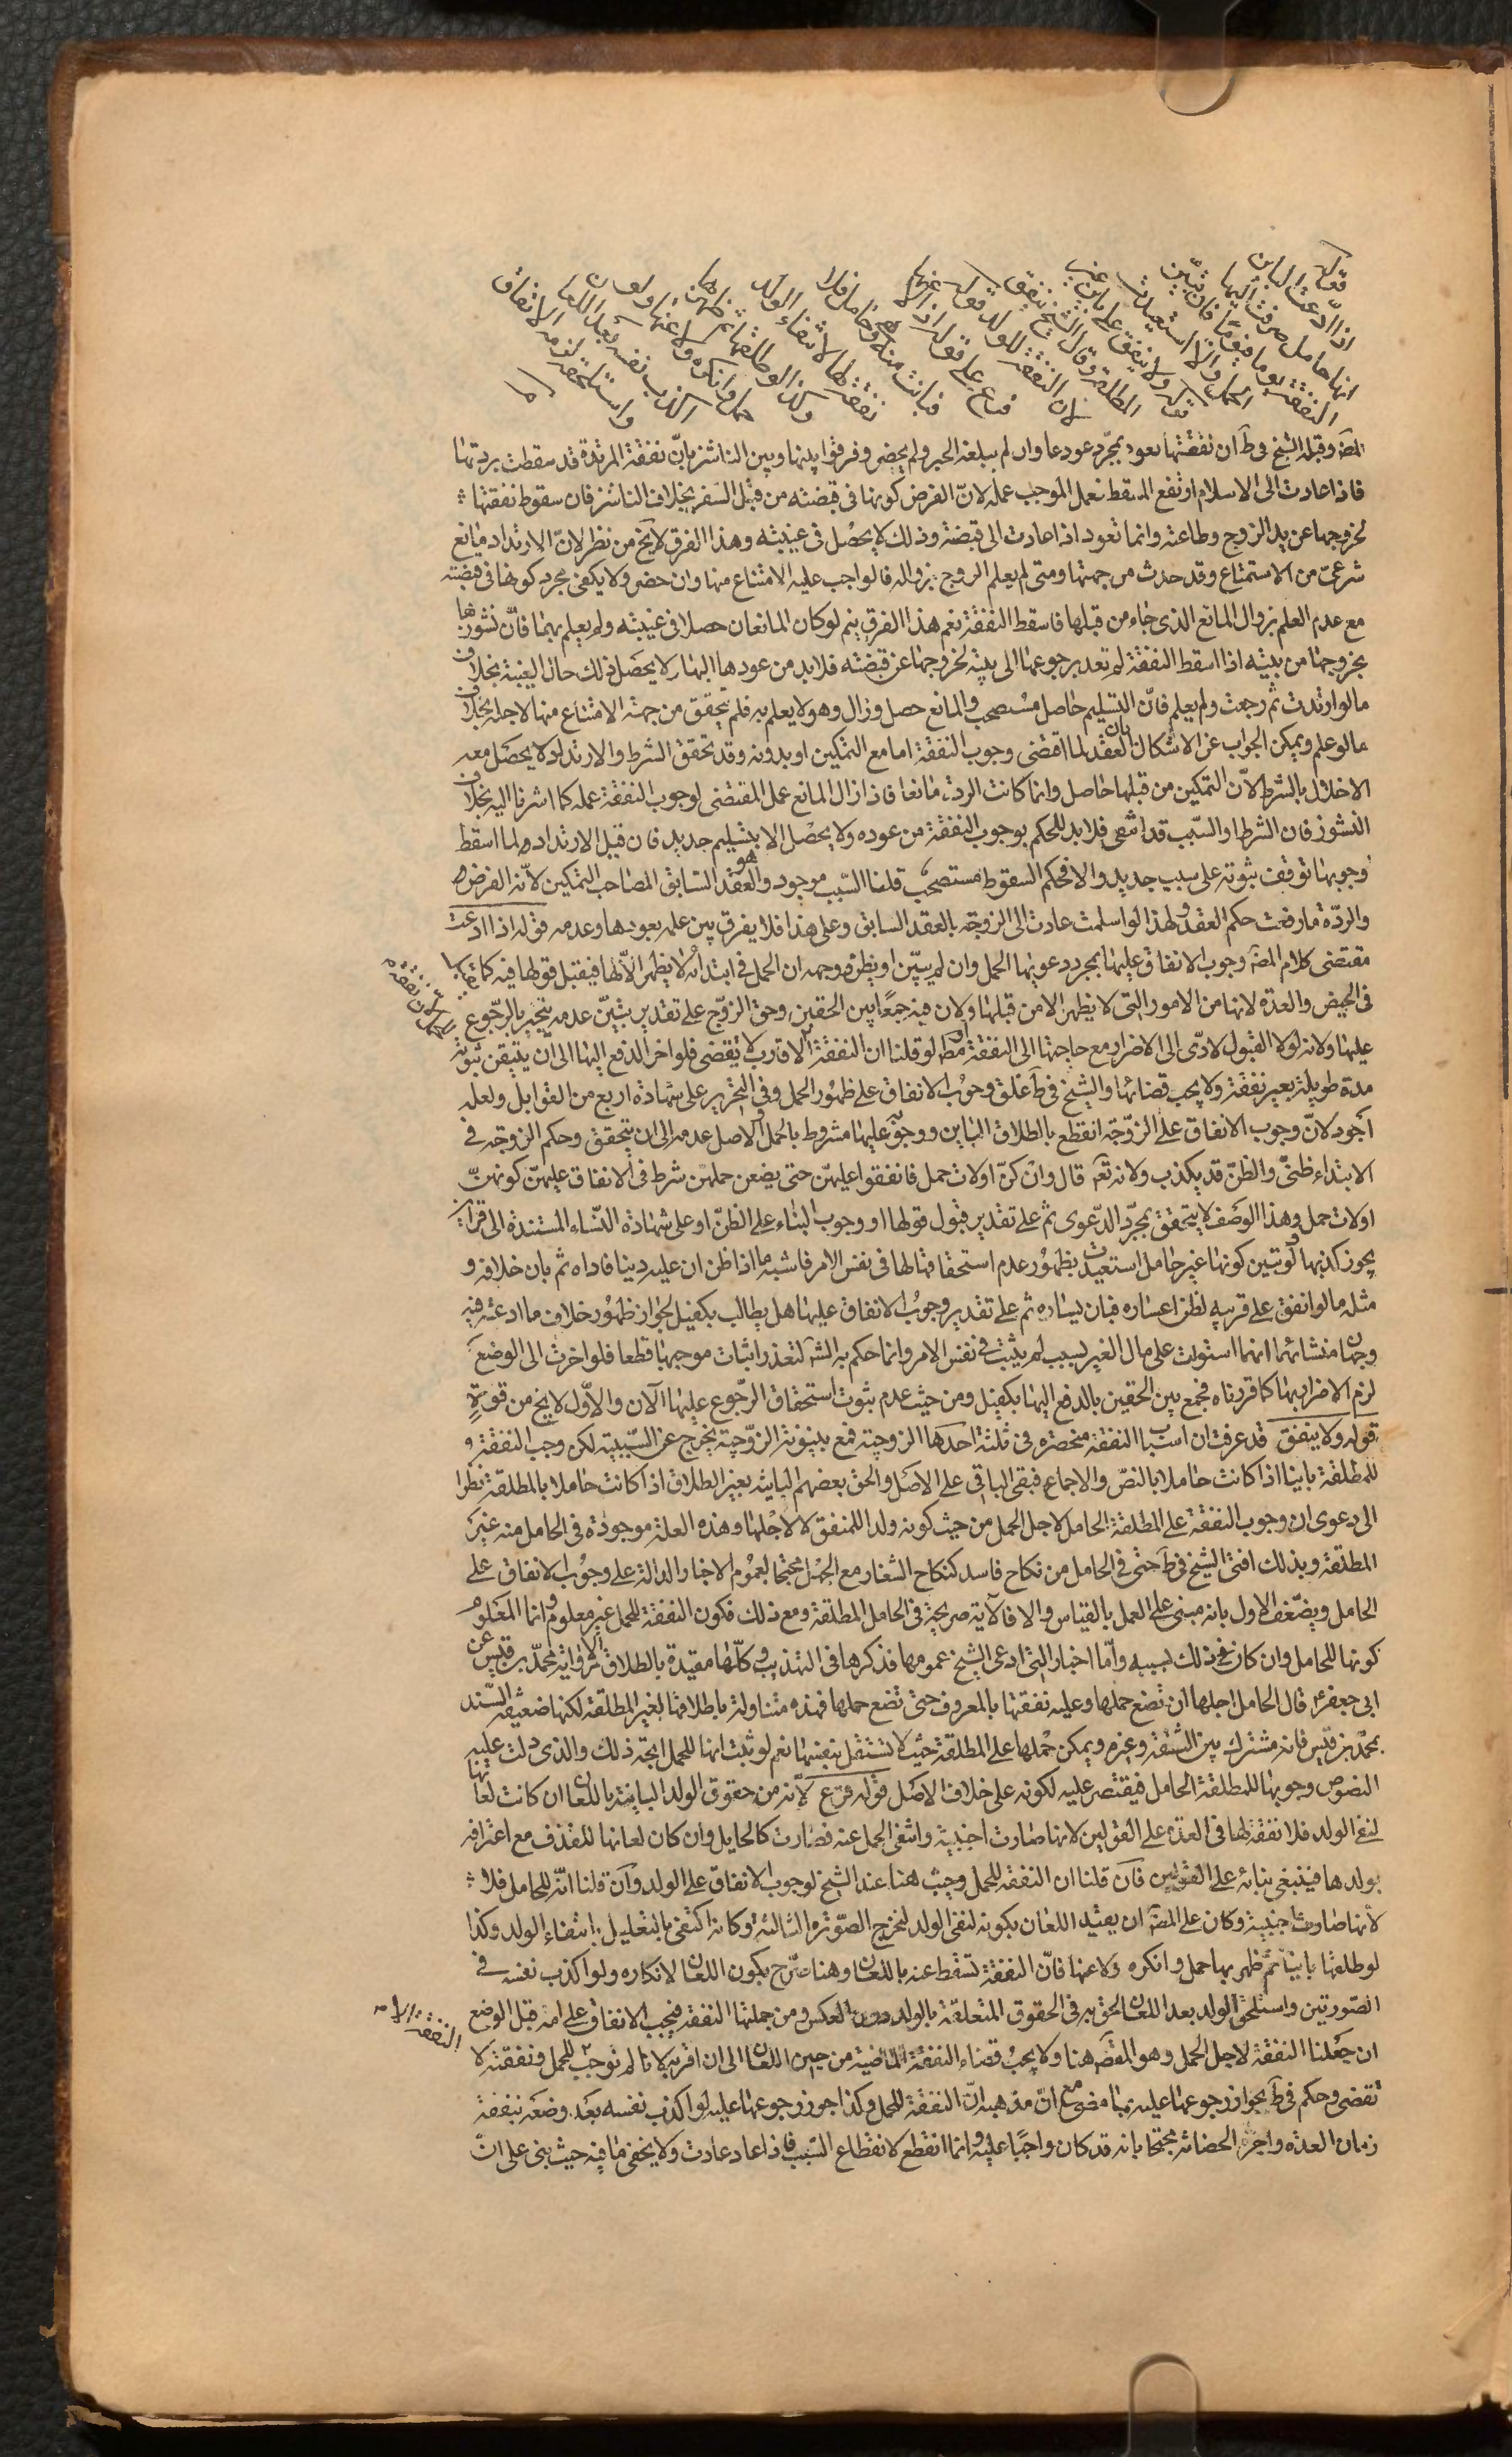 قوله
اذا ادعت البائن
انها حامل صرفت اليها
النفقة يوما فيوما فان تبين
الحمل والا استعيدت
قوله ولا ينفق على بائن غير
المطلقة وقال الشيخ ينفق
لان النفقة للولد
فرع على قوله اذا لاعنها
فبانت منه وهي حامل فلا
نفقة لها لانتفاء الولد
وكذا لو طلقها ثم ظهر بها
حمل فانكره ولاعنها ولو
اكذب نفسه بعد اللعان
واستلحقه لزمه الانفاق
المصَ وقبله الشيخ فى طَ ان نفقتها تعود بمجرد عودها وان لم يبلغه الخبر ولم يحضر وفرقوا بينها وبين الناشز بانّ نفقة المرتدة قد سقطت بردتها
فاذا عادت الى الاسلام ارتفع المسقط فعمل الموجب عمله لانّ الفرض كونها فى قبضته من قبل السفر بخلاف الناشز فان سقوط نفقتها
لخروجها عن يد الزوج وطاعته وانما تعود اذا عادت الى قبضته وذلك لا يحصل فى غيبته وهذا الفرق لا يخ من نظر لانّ الارتداد مانع
شرعىّ من الاستمتاع وقد حدث من جهتها ومتى لم يعلم الزوج بزواله فالواجب عليه الامتناع منها وان حضر ولا يكفى مجرد كونها فى قبضته
مع عدم العلم بزوال المانع الذى جاء من قبلها فاسقط النفقة نعم هذا الفرق يتم لو كان المانعان حصلا فى غيبته ولم يعلم بهما فانّ نشوزها
بخروجها من بيته اذا اسقط النفقة لم تعد برجوعها الى بيته لخروجها عن قبضته فلا بد من عودها اليها ولا يحصل ذلك حال الغيبة بخلاف
ما لو ارتدت ثم رجعت ولم يعلم فانّ التسليم حاصل مستصحب والمانع حصل وزال وهو لا يعلم به فلم يتحقق من جهته الامتناع منها لاجله بخلاف
ما لو علم ويمكن الجواب عن الاشكال بان العقد لما اقتضى وجوب النفقة اما مع التمكين او بدونه وقد تحقق الشرط والارتداد لا يحصل معه
الاخلال بالشرط لانّ التمكين من قبلها حاصل وانما كانت الردة مانعا فاذا زال المانع عمل المقتضى لوجوب النفقة عمله كما اشرنا اليه بخلاف
النشوز فان الشرط او السّبب قد انتفى فلا بد للحكم بوجوب النفقة من عوده ولا يحصل الا بتسليم جديد فان قيل الارتداد لما اسقط
وجوبها توقف ثبوته على سبب جديد والا فحكم السقوط مستصحب قلنا السّبب موجود وهو العقد السّابق المصاحب التمكين لانّه الفرض
والردّة ما رفعت حكم العقد ولهذا لو اسلمت عادت الى الزوجية بالعقد السابق وعلى هذا فلا يفرق بين علمه بعودها وعدمه قوله اذا ادعت
مقتضى كلام المصَ وجوب الانفاق عليها بمجرد دعويها الحمل وان لم يتبيّن او يظن ووجهه ان الحمل فى ابتدائه لا يظهر الّا لها فيقبل قولها فيه كما يقبل
فى الحيض والعدّة لانها من الامور التى لا يظهر الا من قبلها ولان فيه جمعًا بين الحقين وحق الزوّج على تقدير تبيّن عدمه ينجبر بالرّجوع
عليها ولانه لولا القبول لادّى الى الاضرار مع حاجتها الى النفقة لو قلنا ان النفقة الاقارب لا تقضى فلو اخر الدفع اليها الى ان يتيقن ثبوته
مدة طويلة بغير نفقة ولا يجب قضائها والشيخ فى طَ علق وجوب الانفاق على ظهور الحمل وفى التحرير على شهادة اربع من القوابل ولعله
اجود لانّ وجوب الانفاق على الزوّجة انقطع بالطلاق الباين ووجوبه عليها مشروط بالحمل والاصل عدمه الى ان يتحقق وحكم الزوجة فى
الابتداء ظنّى والظنّ قد يكذب ولانه تعَ قال وان كنّ اولات حمل فانفقوا عليهنّ حتى يضعن حملهن شرط فى الانفاق عليهنّ كونهنّ
اولات حمل وهذا الوصف لا يتحقق بمجرّد الدّعوى ثم على تقدير قبول قولها او وجوب البناء على الظنّ او على شهادة النّساء المستندة الى قراين
يجوز كذبها لو تبين كونها غير حامل استعيدت بظهور عدم استحقاقها لها فى نفس الامر فاشبه ما اذا ظن ان عليه دينا فاداه ثم بان خلافه و
مثله ما لو انفق على قريبه لظن اعساره فبان يساره ثم على تقدير وجوب الانفاق عليها هل يطالب بكفيل لجواز ظهور خلاف ما ادعته فيه
وجهان منشائهما انها استولت على مال الغير بسبب لم يثبت فى نفس الامر وانما حكم به الشَ لتعذر اثبات موجبها قطعا فلو اخرت الى الوضع
لزم الاضرار بها كما قررناه فجمع بين الحقين بالدفع اليها بكفيل ومن حيث عدم ثبوت استحقاق الرّجوع عليها الآن والاوّل لا يخ من قوة
قوله ولا ينفق قد عرفت ان اسباب النفقة منحصرة فى ثلثة احدها الزوجية فمع بينونة الزوّجية يخرج عن السّببية لكن وجب النفقة
للمطلقة باينا اذا كانت حاملا بالنصّ والاجماع فبقى الباقى على الاصل والحق بعضهم الباينة بغير الطلاق اذا كانت حاملا بالمطلقة نظرا
الى دعوى ان وجوب النفقة على المطلقة الحامل لاجل الحمل من حيث كونه ولدا للمنفق لا لاجلها وهذه العلة موجودة فى الحامل منه غير
المطلقة وبذلك افتى الشيخ فى طَ حتى فى الحامل من نكاح فاسد كنكاح الشغار مع الجهل محتجا بعموم الاخبار الدالة على وجوب الانفاق على
الحامل ويضّعف الاول بانه مبنى على العمل بالقياس والا فالآية صريحة فى الحامل المطلقة ومع ذلك فكون النفقة للحمل غير معلوم وانما المعلوم
كونها للحامل وان كان فى ذلك بسببه وامّا اخبار التى ادعى الشيخ عمومها فذكرها فى التهذيب وكلّها مقيدة بالطلاق الا رواية محمّد بن قيس عن
ابى جعفر ع قال الحامل اجلها ان تضع حملها وعليه نفقتها بالمعروف حتى تضع حملها فهذه متناولة باطلاقها لغير المطلقة لكنها ضعيفة السّند
بمحمّد بن قيس فانه مشترك بين الثقة وغيره ويمكن حملها على المطلقة حيث لا تستقل بنفسها نعم لو ثبت انها للحمل اتجه ذلك والذى دلت عليه
النصوص وجوبها للمطلقة الحامل فيقتصر عليه لكونه على خلاف الاصل قوله فرع لانّه من حقوق الولد الباينة باللعان ان كانت لعانها
لنفى الولد فلا نفقة لها فى العدة على القولين لانها صارت اجنبية وانتفى الحمل عنه فصارت كالحايل وان كان لعانها للقذف مع اعترافه
بولدها فينبغى بنائه على القولين فان قلنا ان النفقة للحمل وجبت هنا عند الشيخ لوجوب الانفاق على الولد وان قلنا انّه للحامل فلا
لانها صارت اجنبية وكان على المصَ ان يقيّد اللعان بكونه لنفى الولد لتخرج الصّورة الثالثة وكانه اكتفى بالتعليل بانتفاء الولد وكذا
لو طلقها باينا ثم ظهر بها حمل وانكره ولاعنها فانّ النفقة تسقط عنه باللعان وهنا صّرح بكون اللعان لانكاره ولو اكذب نفسه فى
الصّورتين واستلحق الولد بعد اللعان لحق به فى الحقوق المتعلقة بالولد دون العكس ومن جملتها النفقة فيجب الانفاق على امه قبل الوضع
ان جعلنا النفقة لاجل الحمل وهو القصَ هنا ولا يجب قضاء النفقة الماضية من حين اللعان الى ان اقر به لانا لم نوجب للحمل ونفقته لا
تقضى وحكم فى طَ بجواز رجوعها عليه بما مضى مع انّ مذهبه انّ النفقة للحمل وكذا جوز رجوعها عليه لو اكذب نفسه بعد وضعه بنفقة
زمان العدة واجرة الحضانة محتجا بانه قد كان واجبًا عليه وانما انقطع لانقطاع السّبب فاذا عاد عادت ولا يخفى ما فيه حيث بنى على انّ